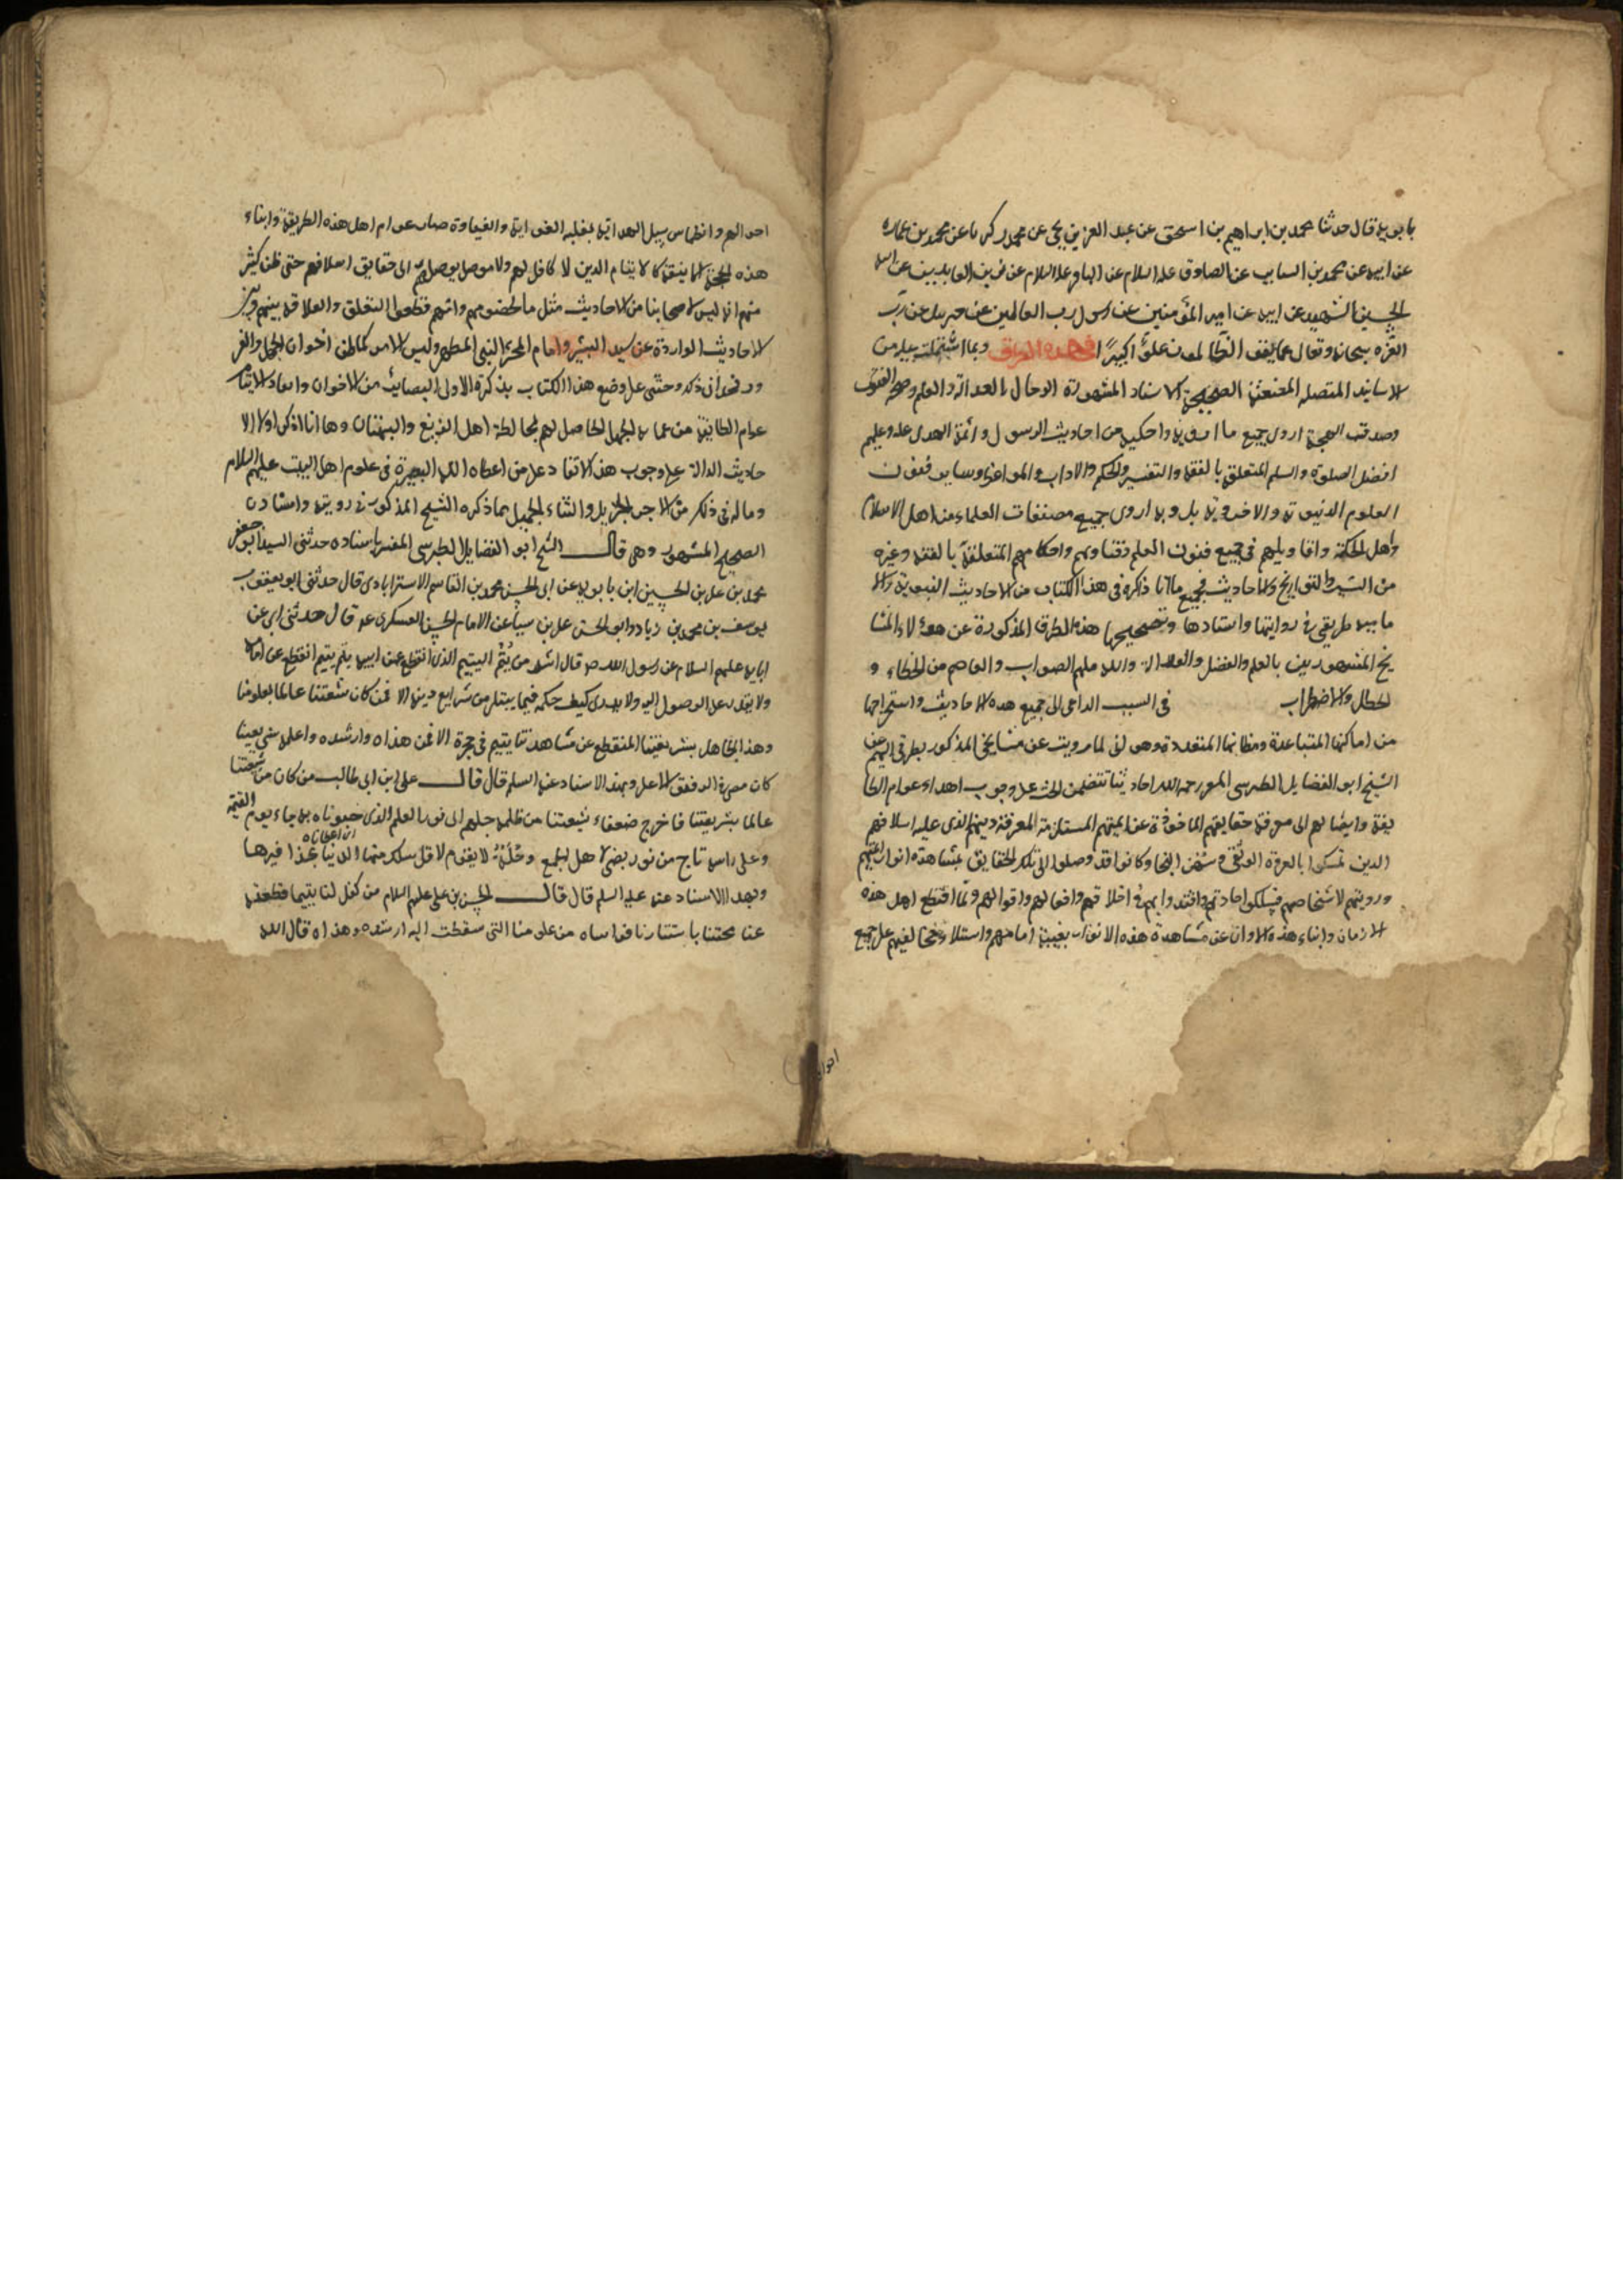 بابويه قال حدثنا محمد بن ابراهيم بن اسحق عن عبد العزيز بن يحيى عن محمد بن زكريا عن محمد بن عماره
عن ابيه عن محمد بن السايب عن الصادق عليه السلام عن الباقر عليه السلام عن زين العابدين عن ابيه
الحسين الشهيد عن ابيه عن امير المؤمنين عن رسول رب العالمين عن جبريل عن رب
العزه سبحانه وتعالى عما يقول الظالمون علوًا كبيرًا فبهذه الطرق وبما اشتملت عليه من
الاسانيد المتصله المعنعنة الصحيحة الاسناد المشهورة الرجال بالعدالة والعلم وصحه الفتوى
وصدق اللهجة اروى جميع ما ارويه واحكيه من احاديث الرسول وائمة الهدى عليه وعليهم
افضل الصلوة والسلم المتعلقه بالفقه والتفسير والحكم والاداب والمواعظ وساير فنون
العلوم الدنيويه والاخرويه بل وبه اروى جميع مصنفات العلماء من اهل الاسلام
واهل الحكمة واقاويلهم فى جميع فنون العلم وفتاويهم واحكامهم المتعلقة بالفقه وغيره
من السير والتواريخ والاحاديث فجميع ما انا ذاكره فى هذا الكتاب من الاحاديث النبوية والا
ماميه طريقى فى روايتها واسنادها وتصحيحها هذه الطرق المذكورة عن هؤلاء المشا
يخ المشهورين بالعلم والفضل والعدالة والله ملهم الصواب والعاصم من الخطاء و
الخطل والاضطراب فى السبب الداعى الى جميع هده الاحاديث واستخراجها
من اماكنها المتباعدة ومظانها المتعددة وهى انى لما رويت عن مشايخى المذكور بطرقى اليهم عن
الشيخ ابو الفضايل الطبرسى المفسر رحمه الله احاديثا تتضمن الحث على وجوب اهداء عوام الطا
يفة وايصالهم الى معرفة حقايقهم الماخوذة عن ائمتهم المستلزمة المعرفة دينهم الذى عليه اسلافهم
الدين تمسكوا بالعروة الوثقى وسفن النجا وكانوا قد وصلوا الى تلك الحقايق بمشاهدة انوار ائمتهم
ورويتهم لاشخاصهم فسلكوا جادتهم واقتدوا بهم فى اخلاقهم وافعالهم واقوالهم ولما انقطع اهل هذه
الازمان وابناء هذه الاوان عن مشاهدة هذه الانوار بغيبة امامهم واستيلاء مخالفيهم على جميع
احوالهم وانطماس سبيل الهداية بغلبه الغواية والغباوة صار عوام اهل هذه الطريقة وابناء
هذه كالايتام الدين لا كافل لهم ولا موصل يوصلهم الى حقايق اسلافهم حتى ظن كثير
منهم انه ليس لاصحابنا من الاحاديث مثل ما لخصومهم وانهم قطعوا التعلق والعلاقه بينهم وبين
الاحاديث الواردة عن سيد البشر وامام المحشر النبى المطهر وليس الامر كما ظن اخوان الجهل والغر
ور فحدانى ذلك وحثنى على وضع هذا الكتاب تذكرة لاولى البصاير من الاخوان وابعاد الايتام
عوام الطايفة من عماية الجهل الحاصل لهم بمخالطة اهل الزيغ والبهتان وها انا اذكر اولا الا
حاديث الدالة على وجوب هذا الانقاد على من اعطاه الله البصيرة فى علوم اهل البيت عليهم السلام
وما له فى ذلك من الاجر الجزيل والثناء الجميل مما ذكره الشيخ المذكور فى رويته واسناده
الصحيح المشهور وهى قال الشيخ ابو الفضايل الطبرسى المفسر باسناده حدثنى السيد ابو جعفر
محمد بن على بن الحسين ابن بابويه عن ابى الحسن محمد بن القاسم الاسترابادى قال حدثنى ابو يعقوب
يوسف بن محمد بن زياد وابو الحسن على بن سيار عن الامام الحسن العسكرى ع قال حدثنى ابى عن
ابايه عليهم السلام عن رسول الله ص قال اشد من يُتم اليتيم الذى انقطع عن ابيه يتم يتيم انقطع عن امامه
ولا يقدر على الوصول اليه ولا يدرى كيف حكمه فيما يبتلى من شرايع دينه الا فمن كان شيعتنا عالما بعلومنا
وهذا الجاهل بشريعتنا المنقطع عن مشاهدتنا يتيم فى حجره الا فمن هداه وارشده واعلمه شريعتنا
كان معى فى الرفيق الاعلى وبهذا الاسناد عنه السلم قال قال على ابن ابى طالب من كان من شيعتنا
عالما بشريعتنا فاخرج ضعفاء شيعتنا من ظلمة جهلهم الى نور العلم الذى حبوناه به جاء يوم القيمة
وعلى راسه تاج من نور يضئ لاهل الجمع وحُلة لا يقوم لاقل سلك منها الدنيا بحذافيرها
وبهدا الاسناد عنه عليه السلم قال قال الحسن بن على عليهم السلام من كفل لنا يتيما قطعته
عنا محنتنا باستتارنا فواساه من علومنا التى سقطت اليه ارشده وهداه قال الله